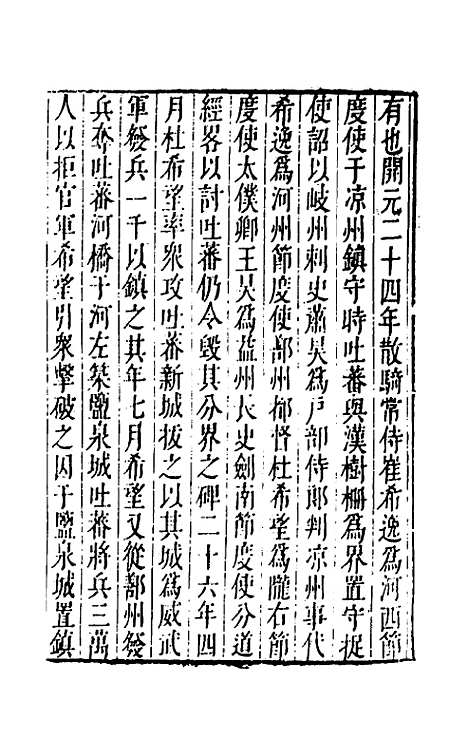 有也開元二十四年散騎常侍崔希逸爲河西節
度使于凉州鎮守時吐蕃與漢樹柵爲界置守捉
使詔以岐州刺史蕭炅爲戶部侍郎判凉州事代
希逸爲河州節度使鄯州都督杜希望爲隴右節
度使太僕卿王昊爲益州長史劍南節度使分道
經畧以討吐蕃仍令毀其分界之碑二十六年四
月杜希望率衆攻吐蕃新城拔之以其城爲威武
軍發兵一千以鎮之其年七月希望又從鄯州發
兵奪吐蕃河橋于河左築鹽泉城吐蕃將兵三萬
人以拒官軍希望引衆擊破之因于鹽泉城置鎮